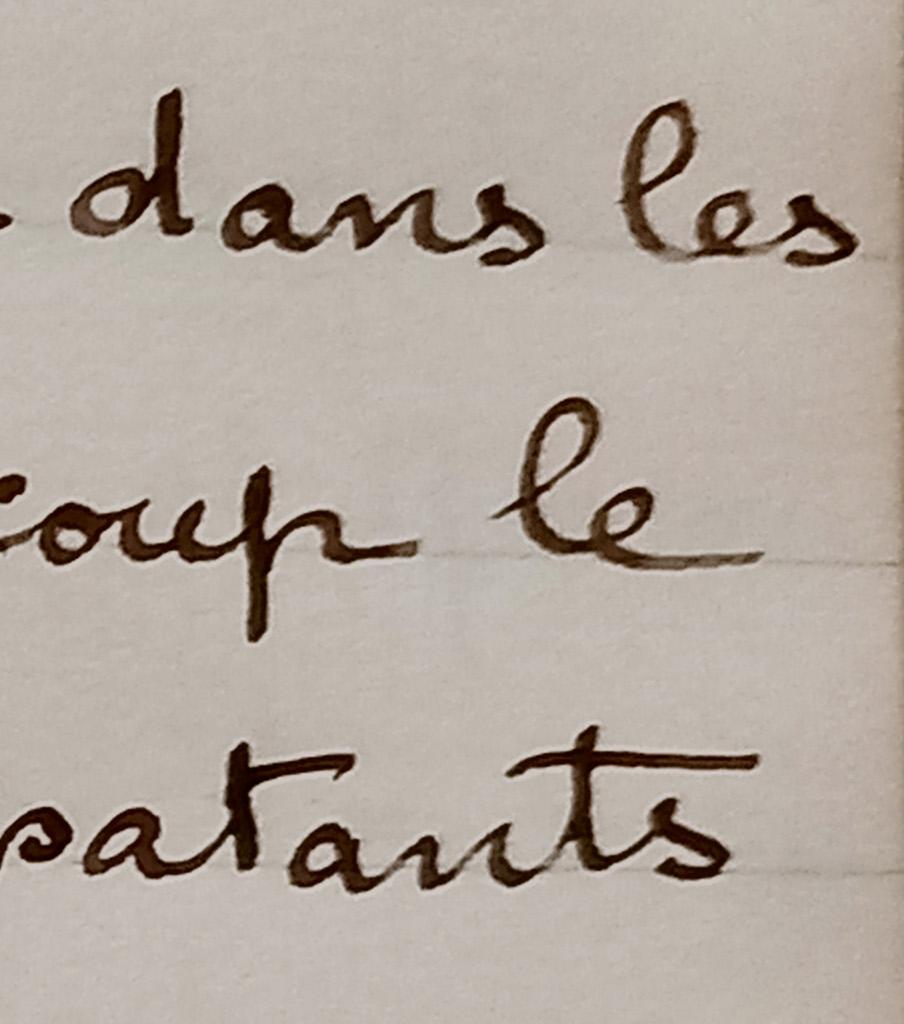 dans les
coup le
patants